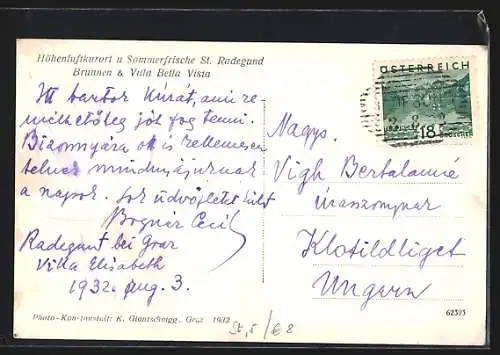 Höhenluftkurort u Sommerfrische St. Radegund
Brunnen & Villa Bella Vista
Itt tartok kúrát, ami re
mélhetőleg jót fog tenni.
Bizonnyára ők is kellemesen
telnek mindnyájuknak
a napok. Sok üdvözletet küld
Bognár Cecil
Radegund bei Graz
Villa Elisabeth
1932. aug. 3.
Photo-Kunstanstalt: K. Glantschnigg, Graz 1932
St, 5/68
ÖSTERREICH
18 GROSCHEN
Nagys.
Vigh Bertalanné
úrasszonynak
Klotildliget
Ungarn
62393